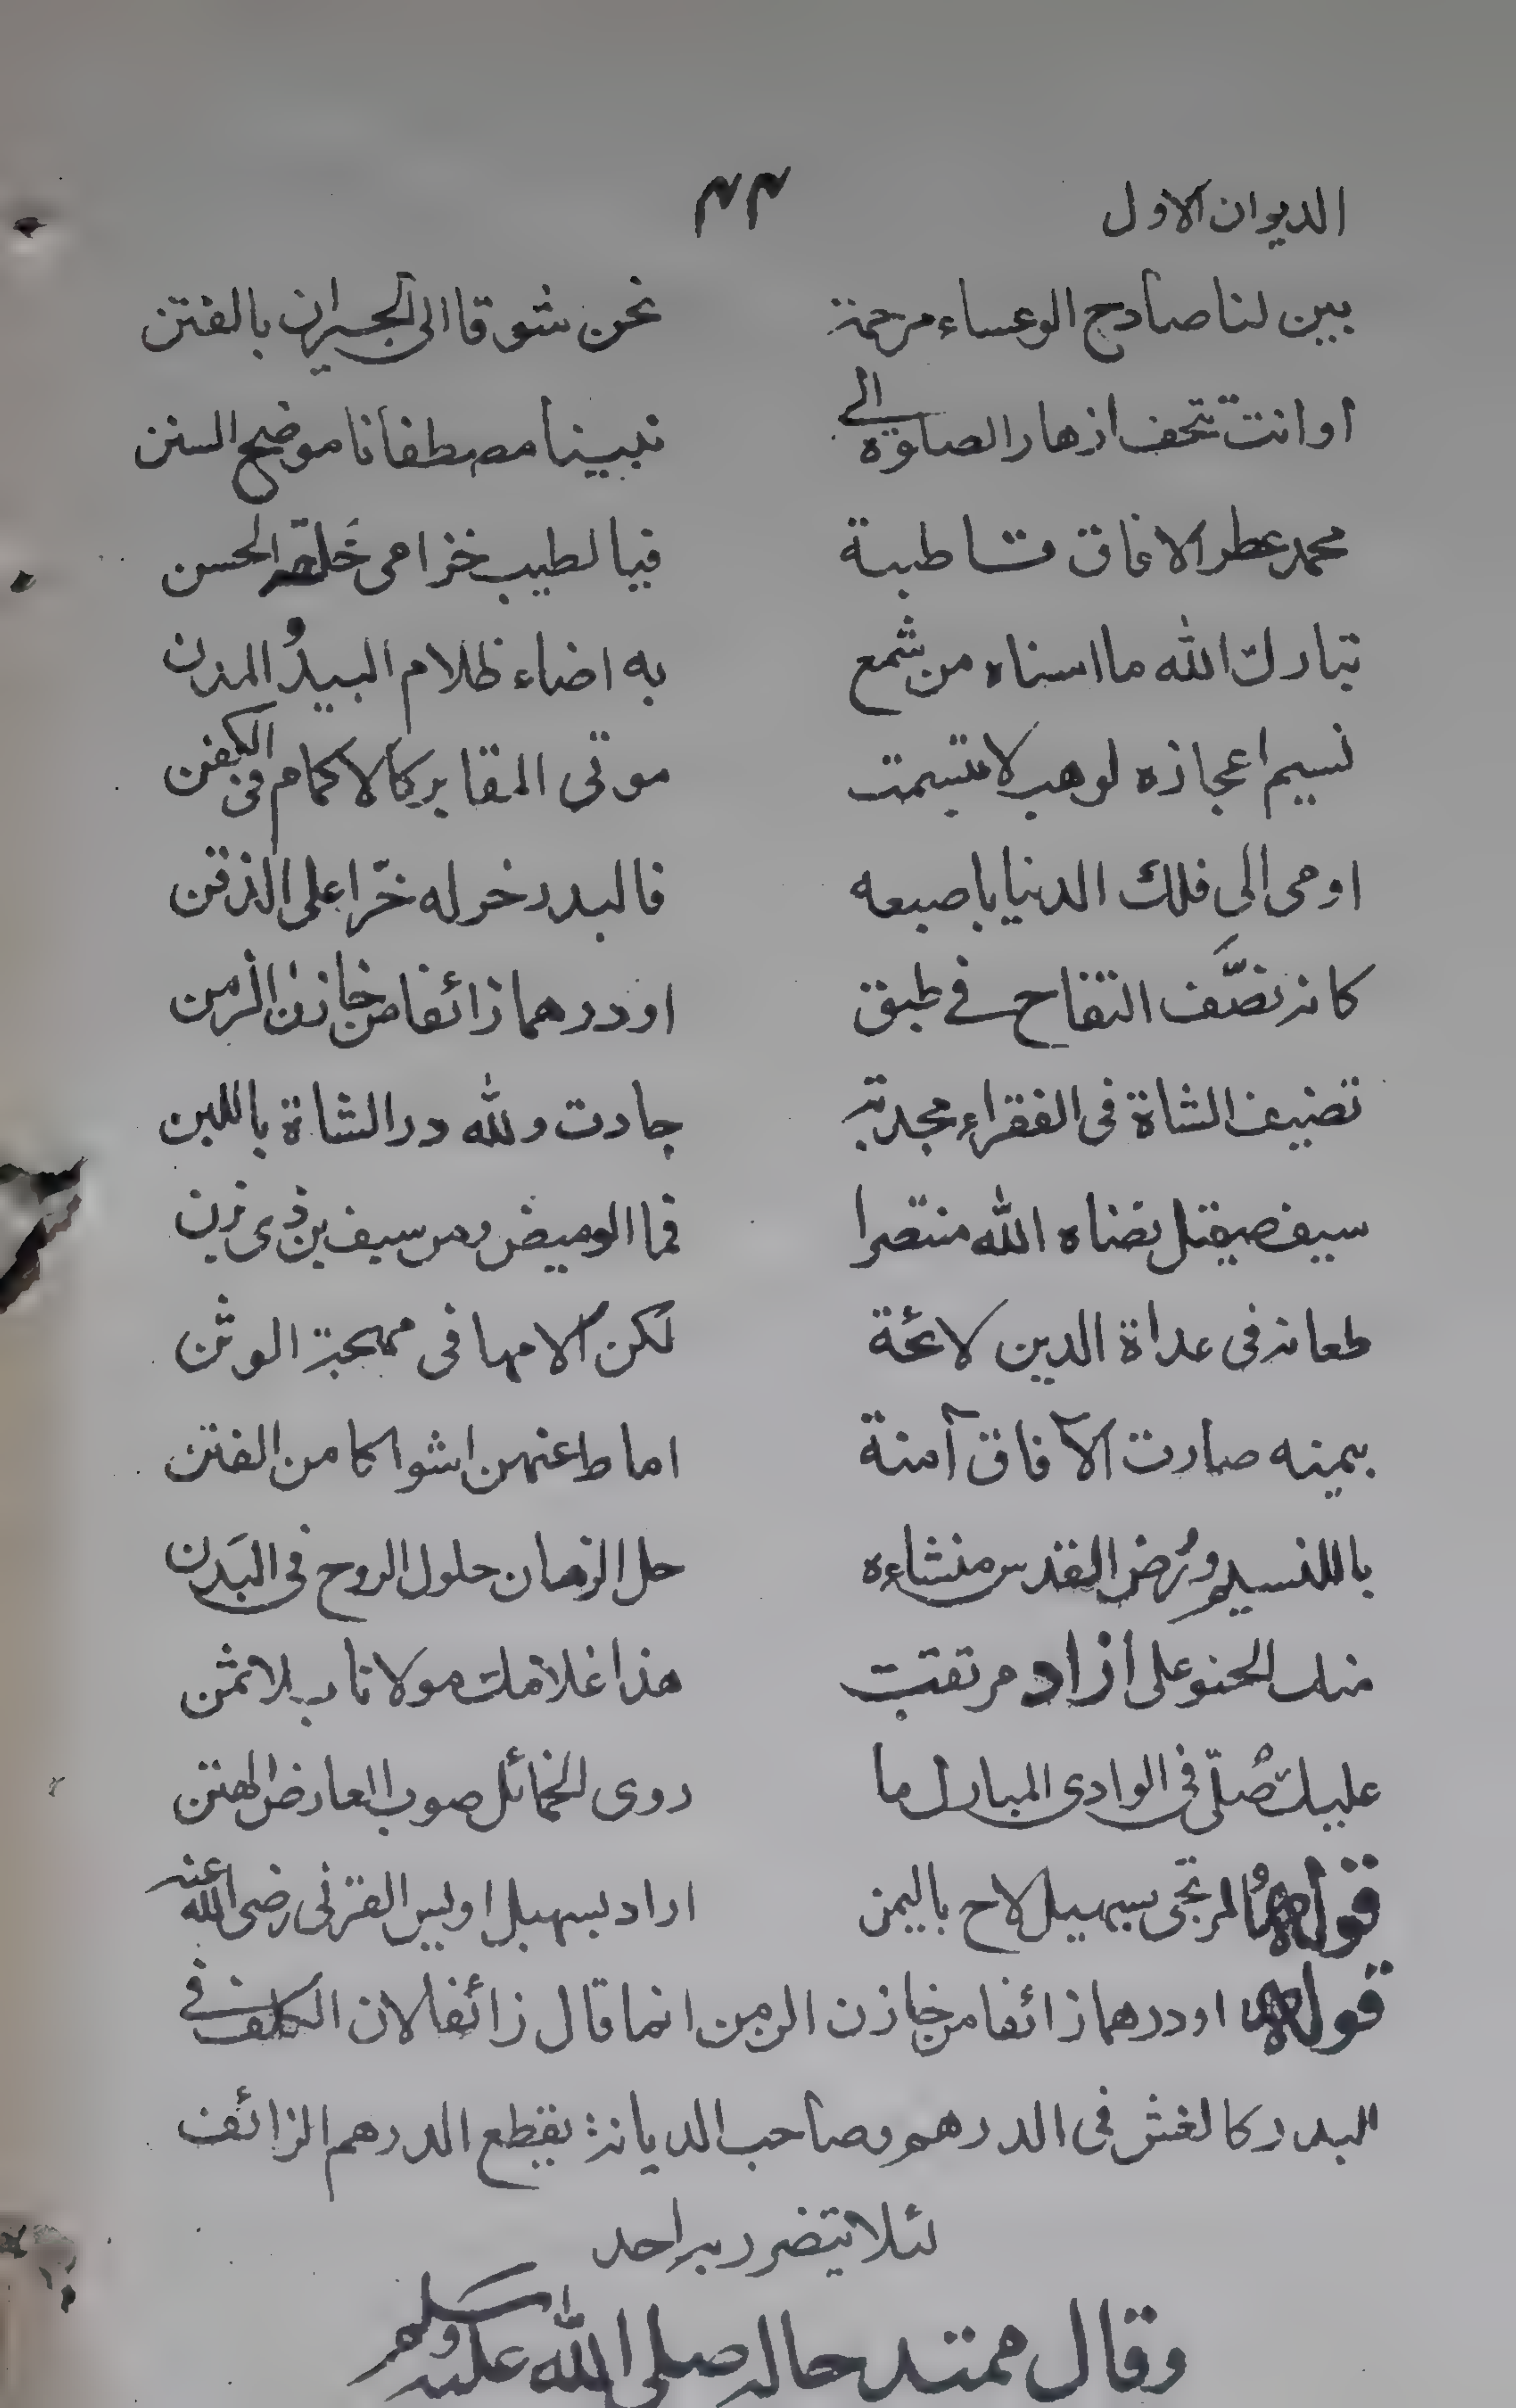 الديوان الاول ٤٤
يبين لنا صادح الوعساء مرحمة نحن شوقا الى الجيران بالفتن
او انت تتحف ازهار الصلوة الى نبينا مصطفانا موضح السنن
محمد عطر الافاق طيبة فيا لطيب خزامى خلقه الحسن
تبارك الله ما اسناه من شمع به اضاء ظلام البيد والمدن
نسيم اعجازه لو هب لابتسمت موتى المقابر كالاكمام فى الكفن
اومى الى فلك الدنيا باصبعه فالبدر خر له خرا على الذقن
كانه نصَّف التفاح في طبق او درهما زائفا من خازن الزمن
تضيف الشاة فى الفقراء مجدبة جادت ولله در الشاة باللبن
سيف صيقل نضاه الله منتصرا فما الوميض ومن سيف بن ذى يزن
طعانه فى عداة الدين لائحة لكن آلامها فى مهجة الوثن
بيمنه صارت الآفاق آمنة اماط عنهن اشواكا من الفتن
ياللنسيم ورُوض القدس منشاءه حل الزمان حلول الروح فى البَدن
منك الحنو على ازاد مرتقب هذا غلامك مولانا بلا ثمن
عليك صُلّى فى الوادى المبارك ما روى الخمائل صوب العارض الهتن
قوله المرتجى سهيل لاح باليمن اراد بسهيل اويس القرنى رضى الله عنه
قوله او درهما زائفا من خازن الزمن انما قال زائفا لان الكلف في
البدر كالغش فى الدرهم وصاحب الديانة يقطع الدرهم الزائف
لئلا يتضرر به احد
وقال ممتدحا له صلى الله عليه وسلم